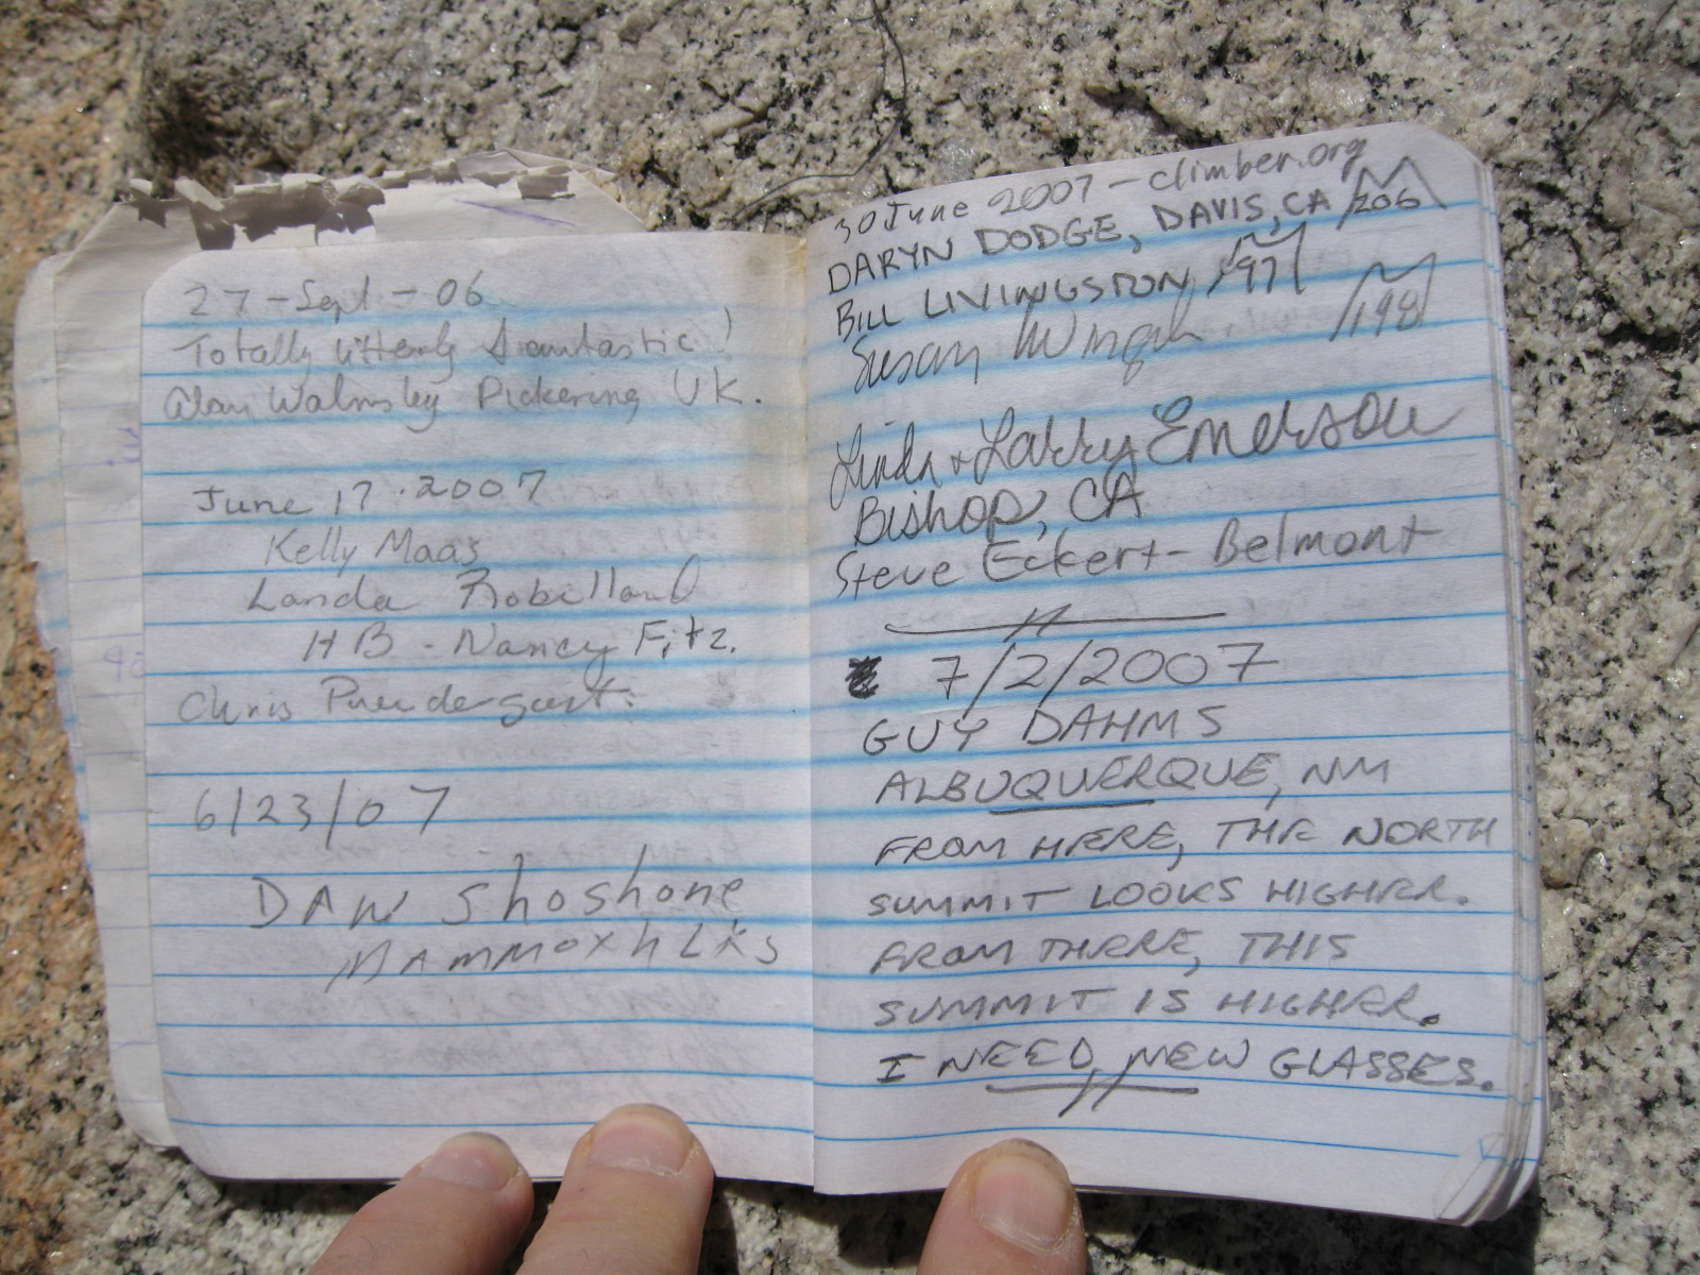 27-Sept-06
Totally utterly fantastic!
Alan Walmsley Pickering UK.
June 17.2007
Kelly Maas
Landa Robillard
HB - Nancy Fitz.
Chris Prendergast.
6/23/07
DAW Shoshone
MAmmoth LKs
30 June 2007 - climber.org
DARYN DODGE, DAVIS, CA 206
BILL LIVINGSTON 97
Susan 198
Linda + Larry Emerson
Bishop, CA
Steve Eckert - Belmont
7/2/2007
GUY DAHMS
ALBUQUERQUE, NM
FROM HERE, THE NORTH
SUMMIT LOOKS HIGHER.
FROM THERE, THIS
SUMMIT IS HIGHER.
I NEED NEW GLASSES.